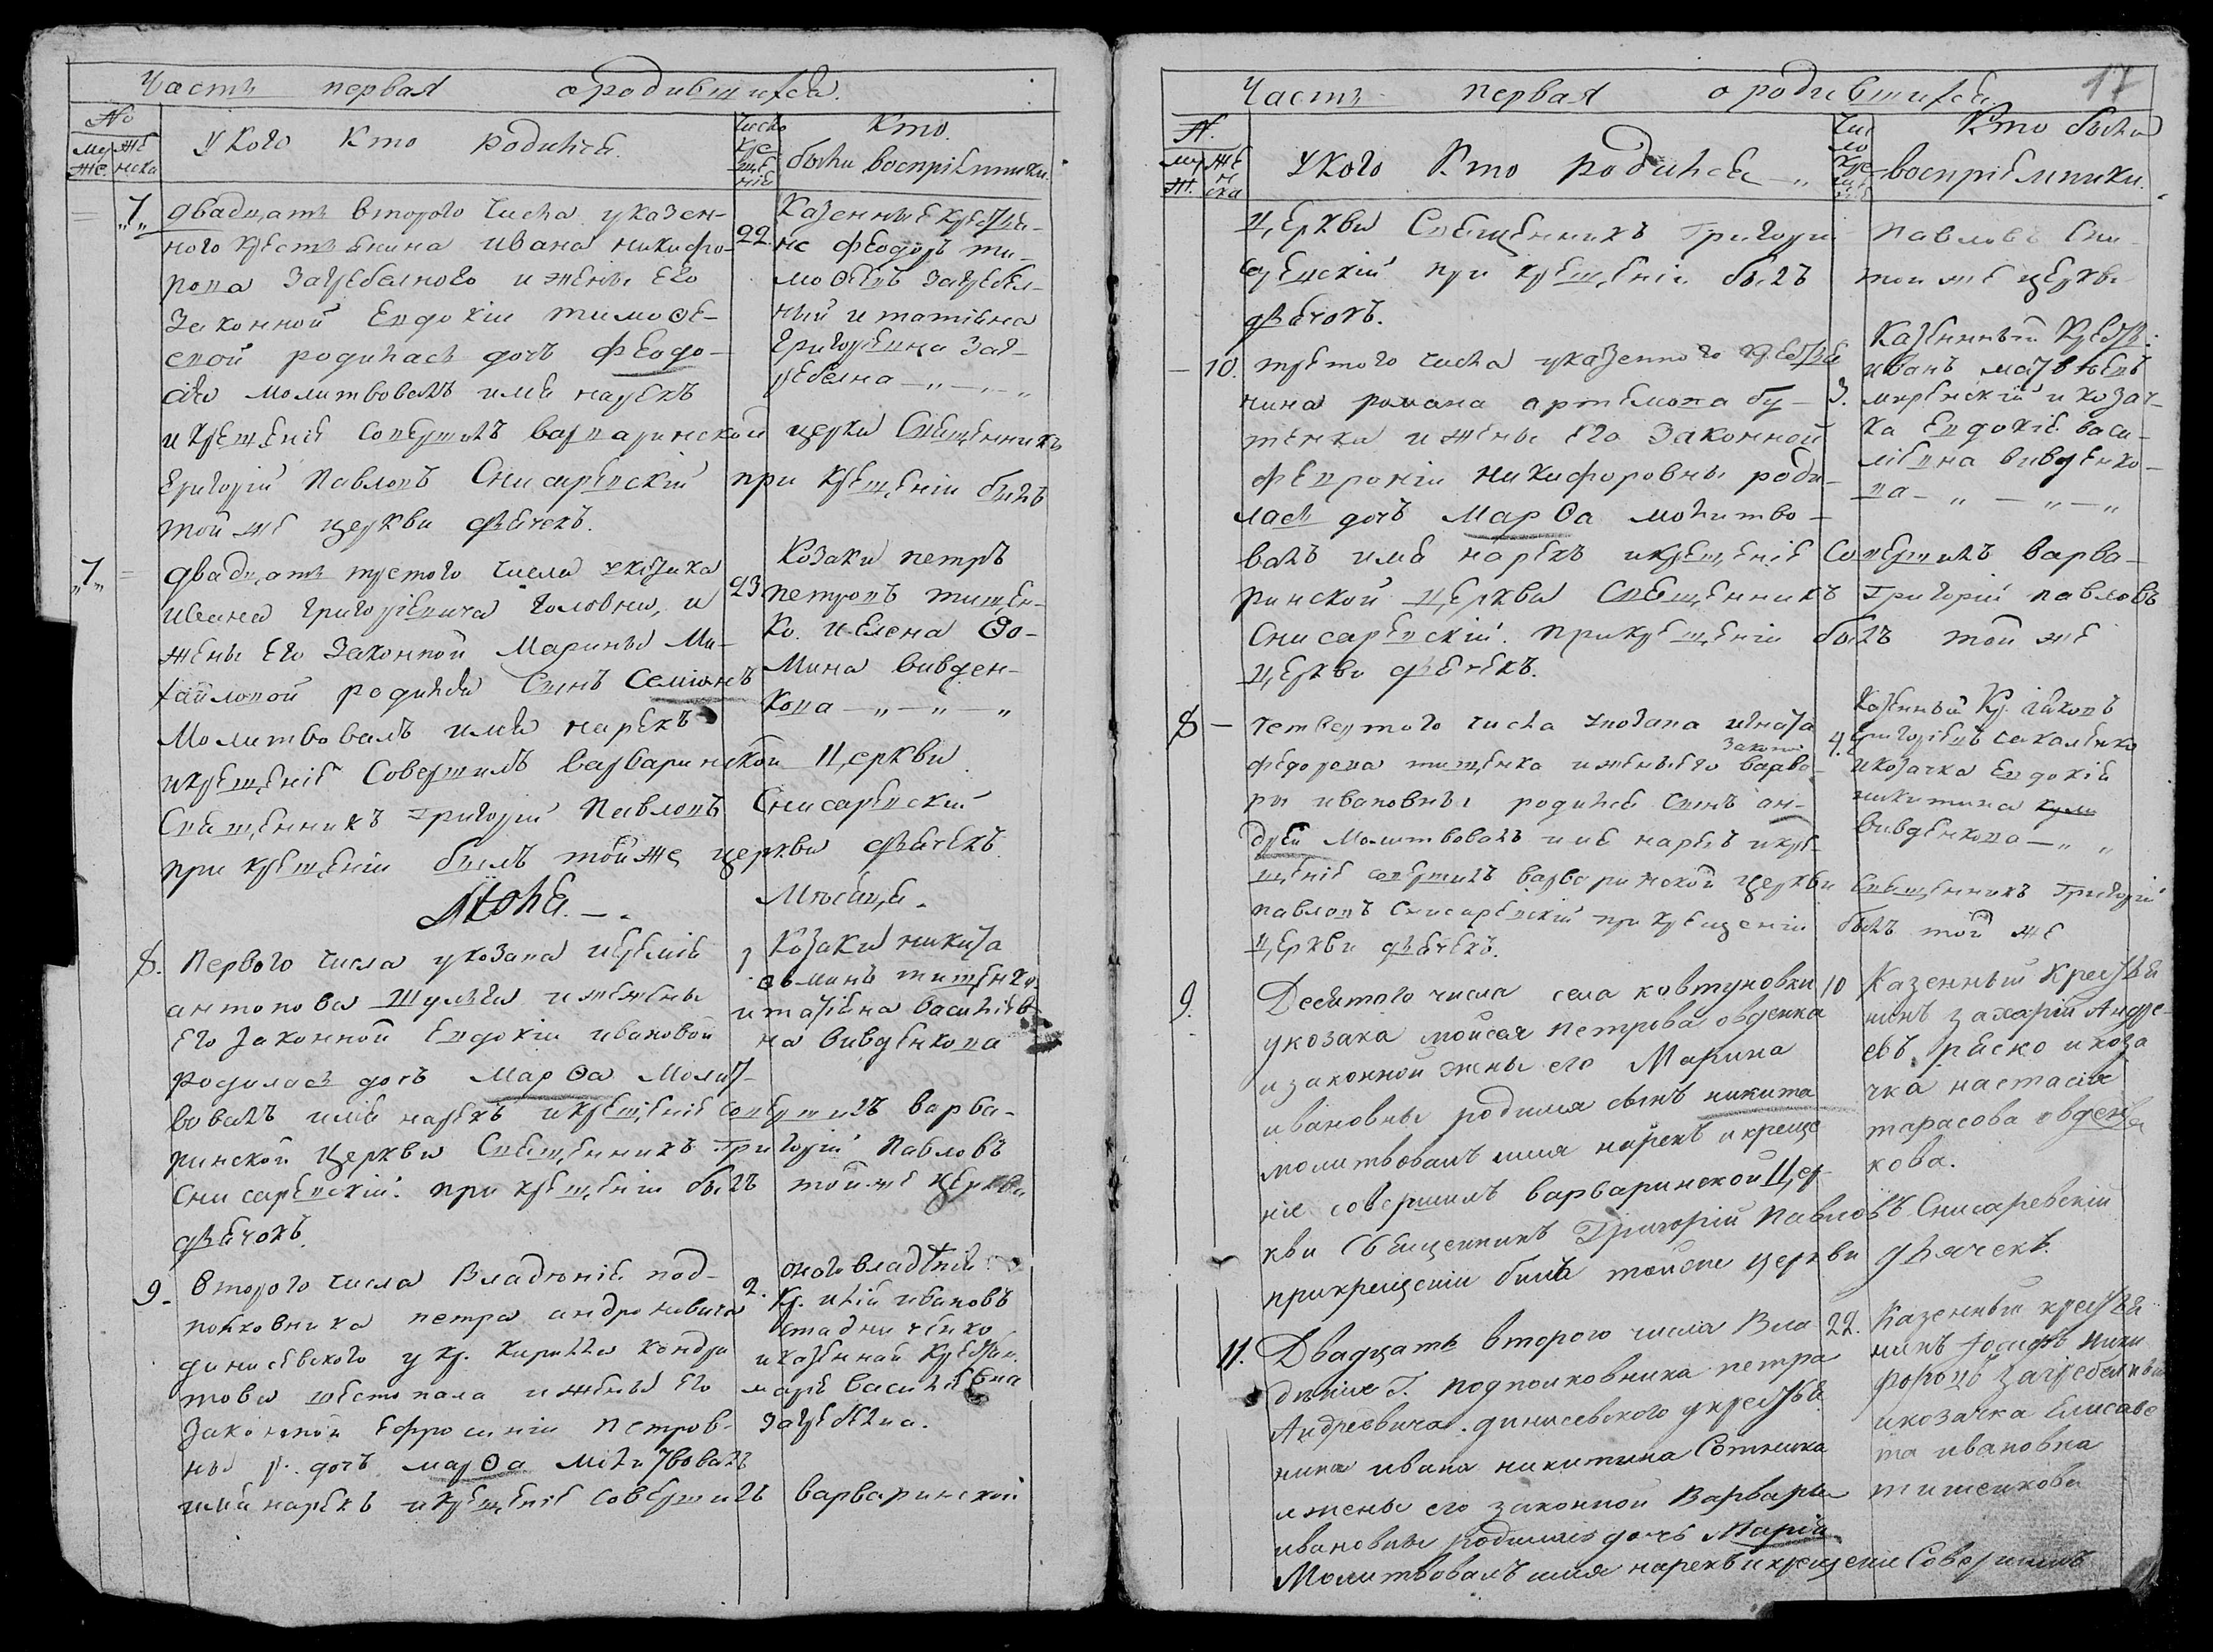 Часть первая о родившихся.
№ муже женска
у кого кто родился.
Число крещенія
Кто были воспріемники.
7
двадцать второго числа у казен-
ного крестьянина ивана никифо-
рова загребелного и жены его
законной Евдокіи тимоѳе-
евой родилась дочь Феодо-
сія молитвовалъ имя нарекъ
и крещеніе совершилъ варваринской церкви священникъ
Григорій Павловъ Снисаревскій при крещеніи былъ
той же церкви дьячекъ.
22.
казенные крестья-
не феодоръ ти-
моѳеевъ загребел-
ный и татіана
григорьевна заг-
ребелна
7
двадцать третого числа у козака
ивана григоріевича головни, и
жены его законной Марины Ми-
хайловой родился сынъ Семіонъ
Молитвовалъ имя нарекъ
и крещеніе совершилъ варваринской Церкви
священникъ Григорій Павловъ Снисаревскій
при крещеніи былъ тойже церкви дьячекъ.
23
Козаки петръ
петровъ тищен-
ко. и елена Ѳо-
мина вивден-
кова
Июня. Мѣсяца.
8. Первого числа у козака іереміи
антонова шуляка и жены
его законной Евдокіи ивановой
родилась дочь Марѳа молит-
вовалъ имя нарекъ и крещеніе совершилъ варва-
ринской церкви священникъ Григорій Павловъ
Снисаревскій. при крещеніи былъ той же церкви
дьячокъ.
1
Козаки никита
ѳоминъ тищенко
и татіана василіев-
на вивденкова
9. второго числа владѣнія под-
полковника петра андреевича
динисевского у кр. кирилла кондра
това шестопала и жены его
законной Ефросиніи Петров-
ны р. дочь марѳа молитвовалъ
имя нарекъ и крещеніе совершилъ варваринской
2.
оного владѣнія
кр. илія ивановъ
и казенной крестьян.
марія василіевна
загребелна.
17
Часть первая о родившихся
N. муж. женска
у кого кто родился
Число крещенія
Кто были воспріемники.
церкви священникъ Григорій Павловъ Сни-
саревскій при крещеніи былъ той же церкви
дьячокъ.
10. третого числа у казенного крестья
нина романа артемова бу-
тенка и жены его законной
февроніи никифоровны роди-
лась дочь Марѳа молитво-
валъ имя нарекъ и крещеніе совершилъ варва-
ринской церкви священникъ Григорій павловъ
Снисаревскій. при крещеніи былъ той же
церкви дьячекъ.
3.
казенный крестья:
иванъ матвѣевъ
миренскій и козач-
ка Евдокія васи-
ліевна вивденко-
ва
8 четвертого числа у козака игната
федорова тищенка и жены его законной варва-
ры ивановны родился сынъ ан-
дрей молитвовалъ имя нарекъ и кре-
щеніе совершилъ варваринской церкви священникъ Григорій
павловъ Снисаревскій при крещеніи былъ той же
церкви дьячекъ.
4.
казенный кр. іяковъ
григоріевъ сакаленко
и козачка Евдокія
никитина
вивденкова
9. Десятого числа села ковтуновки
у козака мойсея петрова овденка
и законной жены его Марина
ивановны родился сынъ никита
молитвовалъ имя нарекъ и креще
ніе совершилъ варваринской Цер-
кви священникъ Григорій Павловъ Снисаревскій
при крещеніи былъ той же церкви дьячекъ.
10
Казенный крестья
нинъ захарій Андре-
евъ ряско и коза
чка настасія
тарасова овден
кова.
11. Двадцать второго числа Вла
дѣнія Г. подполковника петра
Андреевича динисевского у крестья
нина ивана никитина Сотника
и жены его законной Варвары
ивановны родилась дочь Марія
Молитвовалъ имя нарекъ и крещеніе Совершилъ
22.
Казенный крестья
нинъ іосифъ ники
форовъ загребелный
и козачка Елисаве
та ивановна
тищенкова